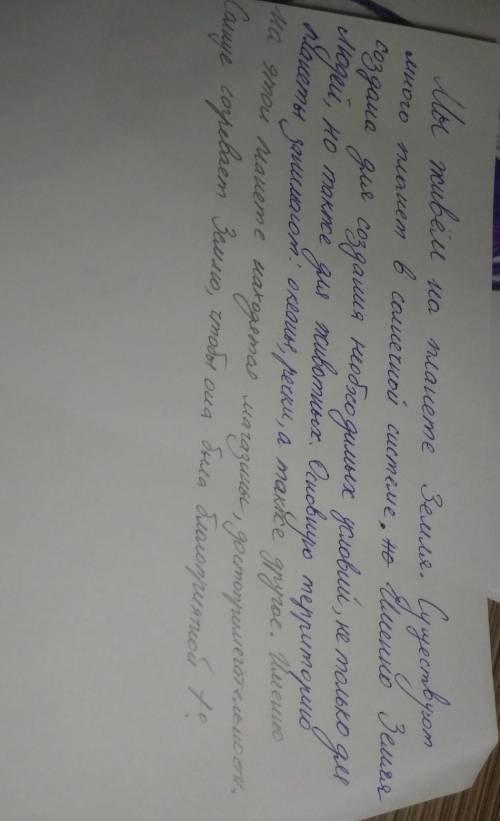 Мы живём на планете Земля. Существуют
много планет в солнечной системе, но Именно Земля
создана для создания необходимых условий, не только для
Людей, но также для животных. Основную территорию
планеты занимают: океаны, рески, а также другое. Имено
на этой планете находятся магазины, достопримечательности.
Санце согревает Землю, чтобы она была благоприятной t°.